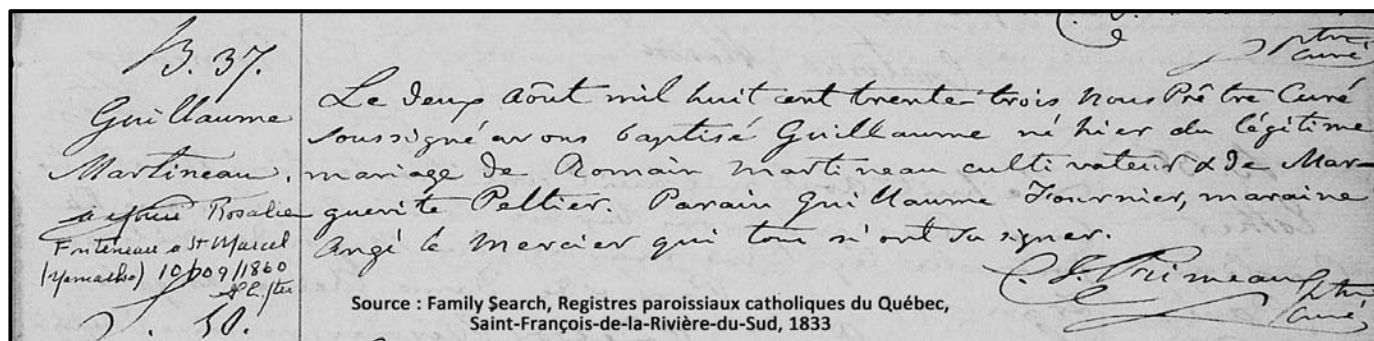 ptre
curé
B. 37.
Guillaume
Martineau.
a épousé Rosalie
à St Marcel
(Yamaska) 10/09/1860
ptre
. 50.
Le deux Aôut mil huit cent trente-trois nous Prêtre Curé
soussigné avons baptisé Guillaume né hier du légitime
mariage de Romain Martineau cultivateur & de Mar-
guerite Peltier. Parain Guillaume Fournier, maraine
Angé le Mercier qui tous n'ont su signer.
Primeau ptre
curé
Source : Family Search, Registres paroissiaux catholiques du Québec,
Saint-François-de-la-Rivière-du-Sud, 1833